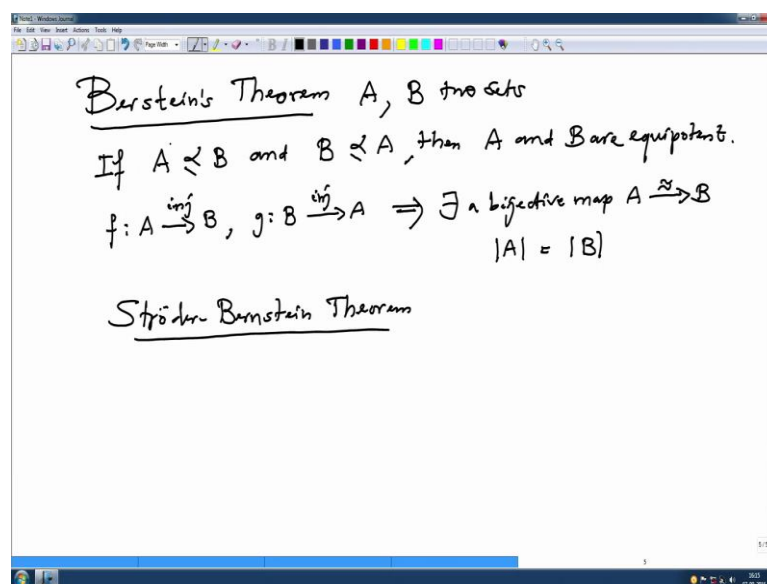 Note1 - Windows Journal
File Edit View Insert Actions Tools Help
Page Width
Berstein's Theorem A, B two sets
If A ≼ B and B ≼ A, then A and B are equipotent.
f: A inj→ B, g: B inj→ A ⟹ ∃ a bijective map A ≈→ B
|A| = |B|
Ströder-Bernstein Theorem
5/5
5
1615